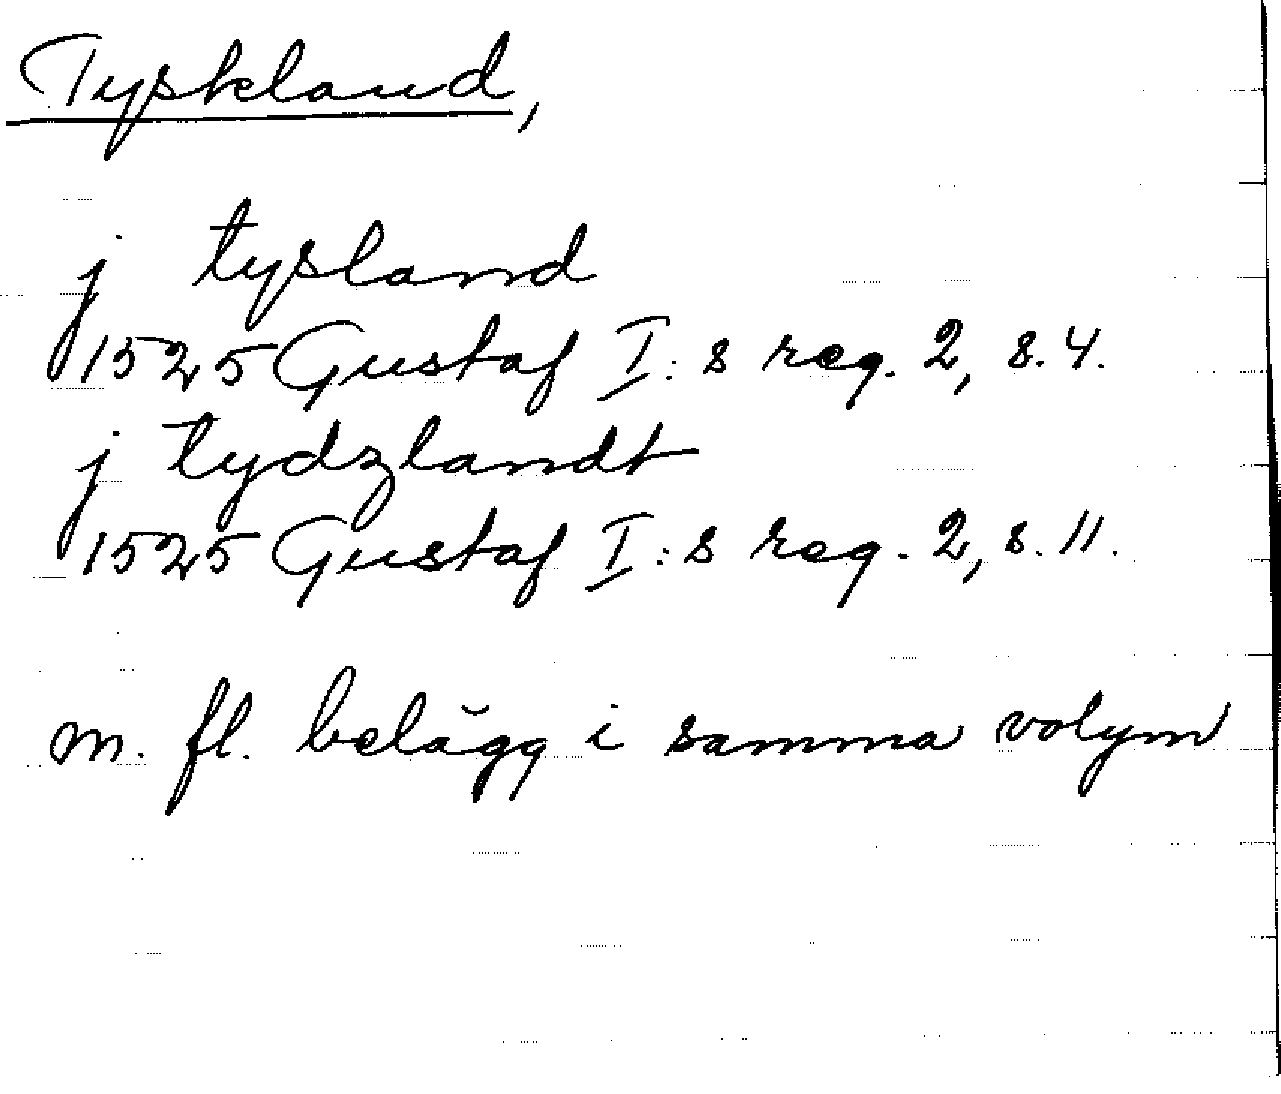 Tyskland,
j tysland
1525 Gustaf I:s reg. 2, s. 4.
j tydzlandt
1525 Gustaf I:s reg. 2, s. 11.
m. fl. belägg i samma volym